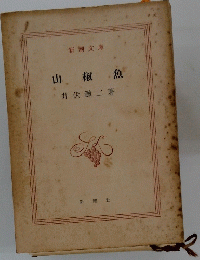 新潮文庫
山椒魚
井伏鱒二著
新潮社